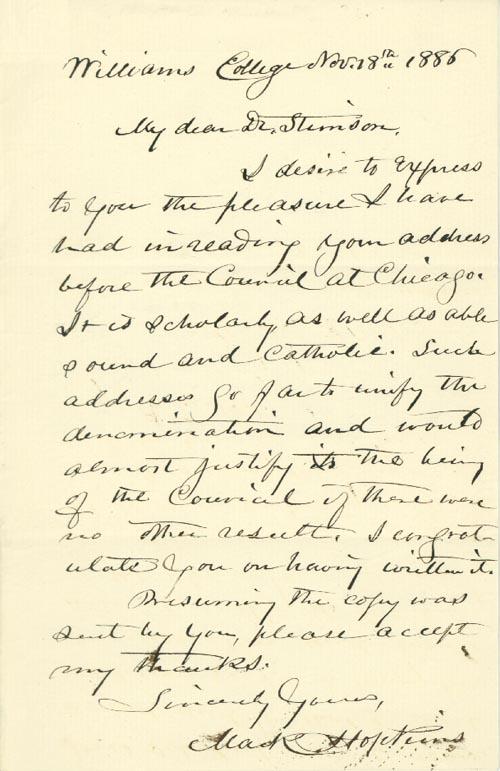 Williams College Nov. 18th 1886
My dear Dr. Stimson,
I desire to express
to you the pleasure I have
had in reading your address
before the Council at Chicago.
It is scholarly, as well as able
sound and Catholic. Such
addresses go far to unify the
denomination and would
almost justify the being
of the Council if there were
no other result. I congrat-
ulate you on having written it.
Presuming the copy was
sent by you, please accept
my thanks.
Sincerely Yours,
Mark Hopkins